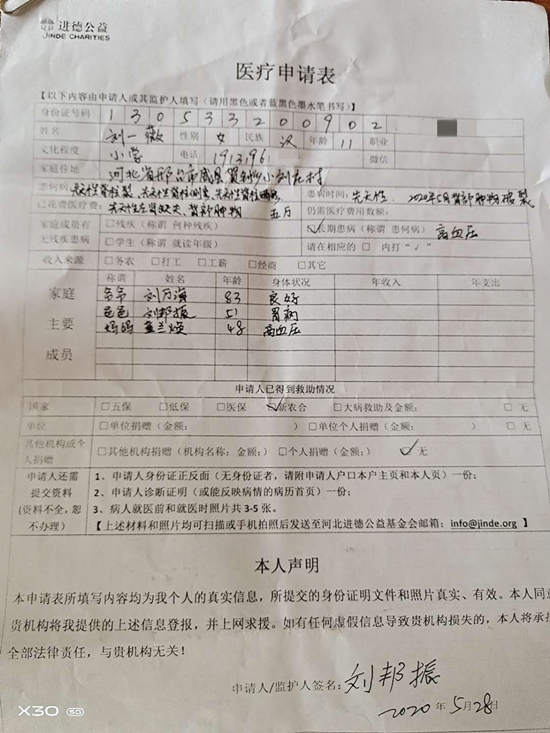 进德公益
JINDE CHARITIES
医疗申请表
【以下内容由申请人或其监护人填写（请用黑色或者蓝黑色墨水笔书写）】
身份证号码 1 3 0 5 3 3 2 0 0 9 0 2
姓名 刘一薇 性别 女 民族 汉 年龄 11 职业
文化程度 小学 电话 1913961 微信
家庭住地 河北省邢台市威县贺钊乡小刘庄村
患何病 先天性脊柱裂、先天性脊柱侧弯、先天性脊柱 患病时间：先天性、2020年5月肾部肿物破裂
已花费医疗费： 先天性左肾 肾部肿物 五万 仍需医疗费用数额：
家庭成员有 □残疾（称谓 何种残疾） ☑长期患病（称谓 患何病）高血压
上残疾患病 □学生（称谓 就读年级） 请在相应的 □ 内打“√”
收入来源 □务农 □打工 □工薪 □经商 □其它
家庭主要成员 称谓 姓名 年龄 身体状况 年收入 年支出
爷爷 刘万演 83 良好
爸爸 刘邦振 51 胃病
妈妈 兰焕 48 高血压
申请人已得到救助情况
国家 □五保 □低保 □医保 ☑新农合 □大病救助及金额： □ 无
单位 □单位捐赠（金额： ） □单位个人捐赠（金额： ） □ 无
其他机构或个人捐赠 □其他机构捐赠（机构名称：金额：） □个人捐赠（金额： ） ☑ 无
申请人还需提交资料（资料不全，恕不办理） 1、申请人身份证正反面（无身份证者，请附申请人户口本户主页和本人页）一份；
2、申请人诊断证明（或能反映病情的病历首页）一份；
3、病人就医前和就医时照片共 3-5 张。
【上述材料和照片均可扫描或手机拍照后发送至河北进德公益基金会邮箱：info@jinde.org】
本人声明
本申请表所填写内容均为我个人的真实信息，所提交的身份证明文件和照片真实、有效。本人同意
贵机构将我提供的上述信息登报，并上网求援。如有任何虚假信息导致贵机构损失的，本人将承担
全部法律责任，与贵机构无关！
申请人/监护人签名：刘邦振
2020 年 5 月 28 日
X30 5G